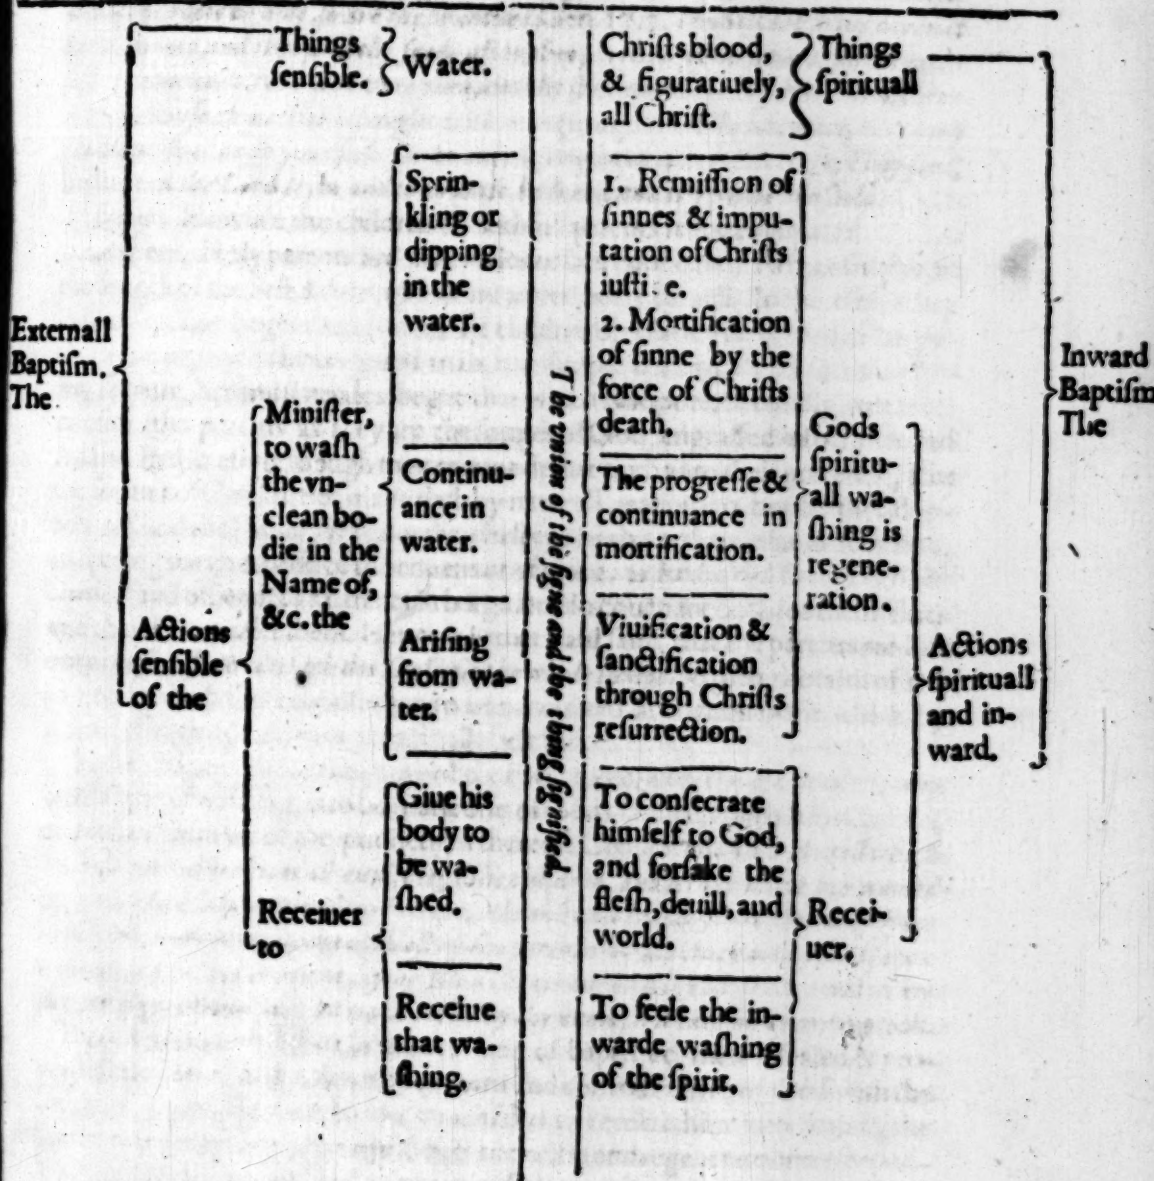 Externall
Baptiſm.
The
Things
ſenſible.
Water.
Actions
ſenſible
of the
Miniſter,
to waſh
the vn-
clean bo-
die in the
Name of,
&c. the
Sprin-
kling or
dipping
in the
water.
Continu-
ance in
water.
Ariſing
from wa-
ter.
Receiuer
to
Giue his
body to
be wa-
ſhed.
Receiue
that wa-
ſhing.
The vnion of the ſigne and the thing ſignified.
Chriſts blood,
& figuratiuely,
all Chriſt.
Things
ſpirituall
1. Remiſſion of
ſinnes & impu-
tation of Chriſts
2. Mortification
of ſinne by the
force of Chriſts
death.
The progreſſe &
continuance in
mortification.
Viuification &
ſanctification
through Chriſts
reſurrection.
Gods
ſpiritu-
all wa-
ſhing is
regene-
ration.
To conſecrate
himſelf to God,
and forſake the
fleſh, deuill, and
world.
To feele the in-
warde waſhing
of the ſpirit.
Recei-
uer.
Actions
ſpirituall
and in-
ward.
Inward
Baptiſm
The